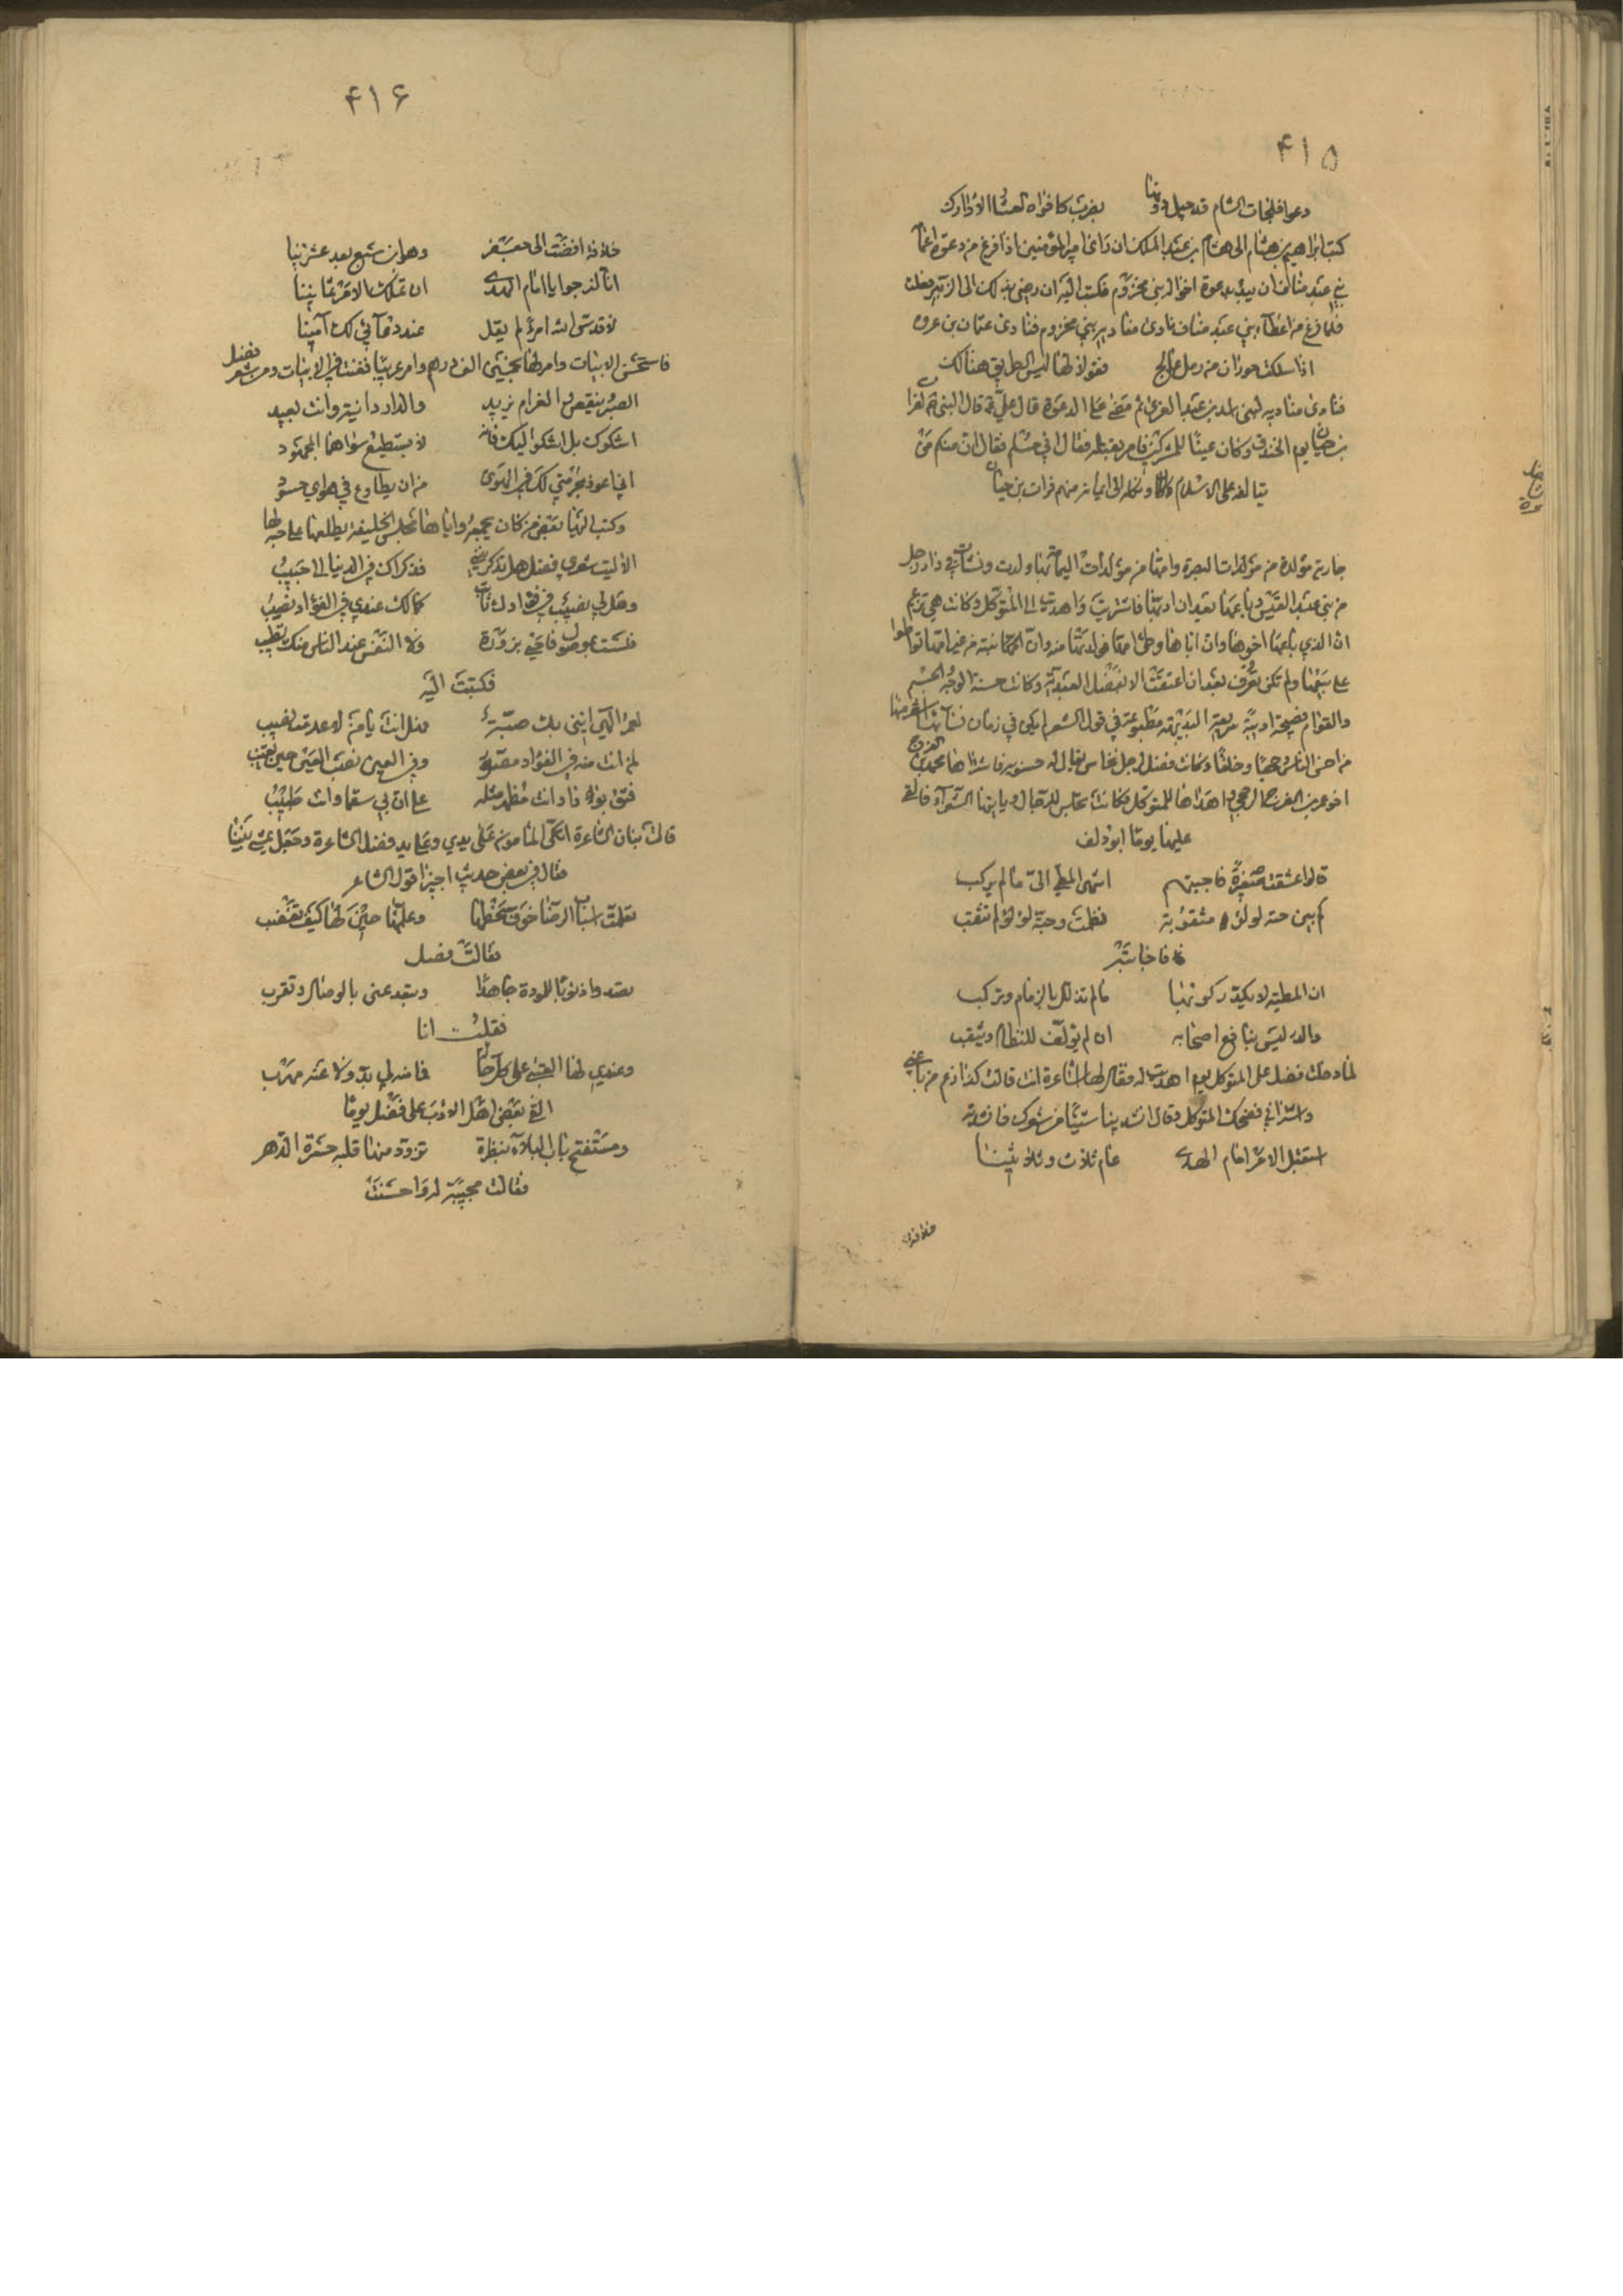 ۴۱۵
دعوا فلجات الشام قد حيل دونها بضرب كافواه العشار الاوارك
كتب ابراهيم بن هشام الى هشام بن عبد الملك ان راى امير المؤمنين اذا فرغ من دعوة اعمامه
بني عبد مناف ان يبدا بدعوة اخواله بني مخزوم فكتب اليه ان رضي بذلك ال الزبير فعلت
فلما فرغ من اعطاء بني عبد مناف نادى مناديه بني مخزوم فنادى عثمان بن عروه
اذا سلكت حوران من رمل عالج فقولا لها ليس الطريق هنالك
فنادى مناديه لبني اسد بن عبد العزى ثم مضى على الدعوة قال علي قال النبي لفرات
بن حيان يوم الخندق وكان عينا للمشركين فامر بقتله فقال اني مسلم فقال ان منكم من
يتالفه على الاسلام واكله الى ايمانه منهم فرات بن حيان
جارية مولدة من مولدات البصرة وامها من مولدات اليمامة بها ولدت ونشات في دار رجل
من بني عبد القيس وباعها بعد ان ادبها فاشتريت واهديت الى المتوكل وكانت هي تزعم
ان الذي باعها اخوها وان اباها وطئ امها فولدتها منه وان
على بيعها ولم تكن تعرف بعد ان اعتقت الا بفضل العبدية وكانت حسنة الوجه والجسم
والقوام فصيحة اديبة سريعة البديهة مطبوعة في قول الشعر لم يكن في زمان نسائها اشعر منها
من احسن الناس وجها وخلقا وكانت فضل لرجل نخاس يقال له حسنويه فاشتراها محمد بن الفرج
اخو عمر بن الفرج الرخجي واهداها للمتوكل فكانت تجلس للرجال وياتيها الشعراء فالقى
عليها يوما ابو دلف
قالوا عشقت صغيرة فاجبتهم اشهى المطي الي ما لم يركب
كم بين حبة لؤلؤ مثقوبة نظمت وحبة لؤلؤ لم تثقب
فاجابته
ان المطية لا يلذ ركوبها ما لم تذلل بالزمام وتركب
والدر ليس بنافع اصحابه ان لم يؤلف للنظام ويثقب
لما دخلت فضل على المتوكل يوم اهديت له فقال لها اشاعرة انت قالت كذا زعم من باعني
واشتراني فضحك المتوكل وقال انشدينا شيئا من شعرك فانشدته
استقبل الامر امام الهدى عام ثلاث وثلاثينا
خلافة
۴۱۶
خلافة افضت الى جعفر وهو ابن سبع بعد عشرينا
انا لنرجو يا امام الهدى ان تملك الامر ثمانينا
لا قدس الله امرأ لم يقل عند دعائي لك آمينا
فاستحسن الابيات وامر لها بخمسين الف درهم وامر عريبا فغنت في الابيات ومن شعر فضل
الصبر ينقص والغرام يزيد والدار دانية وانت بعيد
اشكوك بل اشكو اليك فانه لا يستطيع سواهما المجهود
اني اعوذ بحرمتي لك في الهوى من ان يطاوع في هواي حسود
وكتب اليها بعض من كان يجمعه واياها مجلس الخليفة يطلعها على حبه لها
الا ليت شعري فضل هل تذكرينني فذكراك في الدنيا الي حبيب
وهل لي نصيب في فؤادك ثابت كما لك عندي في الفؤاد نصيب
فلست بموصول فاحيى بزورة ولا النفس عند الناس منك تطيب
فكتبت اليه
لعمر الهي انني بك صبة فهل انت يا من لا عدمت مثيب
لمن انت منه في الفؤاد مصور وفي العين نصب العين حين تغيب
فثق بوداد انت مظهر مثله على ان بي سقما وانت طبيب
قالت بنان الشاعرة اتكى المامون على يدي وعلى يد فضل الشاعرة وجعل يمشي بيننا
فقال في بعض حديثه اجيزا قول الشاعر
تعلمت اسباب الرضا خوف سخطها وعلمها حبي لها كيف تغضب
فقالت فضل
تصد وادنو بالمودة جاهدا وتبعد عني بالوصال وتقرب
فقلت انا
وعندي لها العتبى على كل حالة فما منه لي بد ولا عنه مهرب
القى بعض اهل الادب على فضل يوما
ومستفتح باب البلاء بنظرة تزود منها قلبه حسرة الدهر
فقالت مجيبة له واحسنت